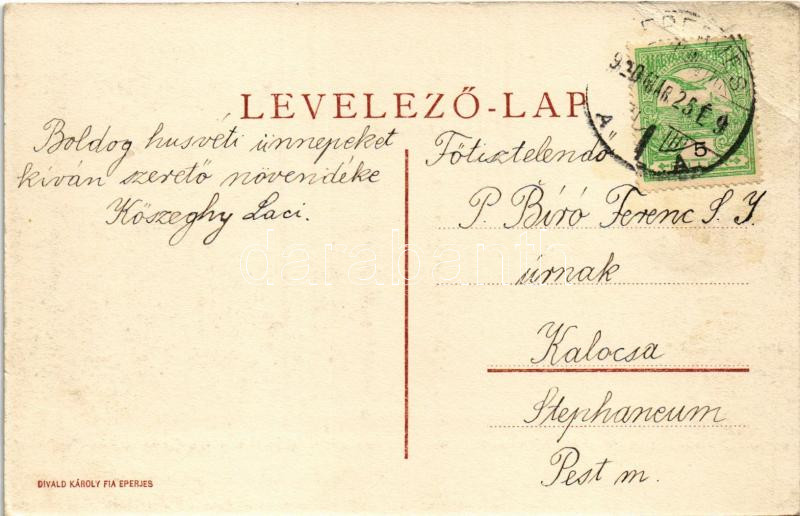 LEVELEZŐ-LAP
Boldog husvéti ünnepeket
kíván szerető növendéke
Kőszeghy Laci.
Főtisztelendő
P. Bíró Ferenc S. J.
úrnak
Kalocsa
Stephaneum
Pest m.
5
DIVALD KÁROLY FIA EPERJES
darabanth